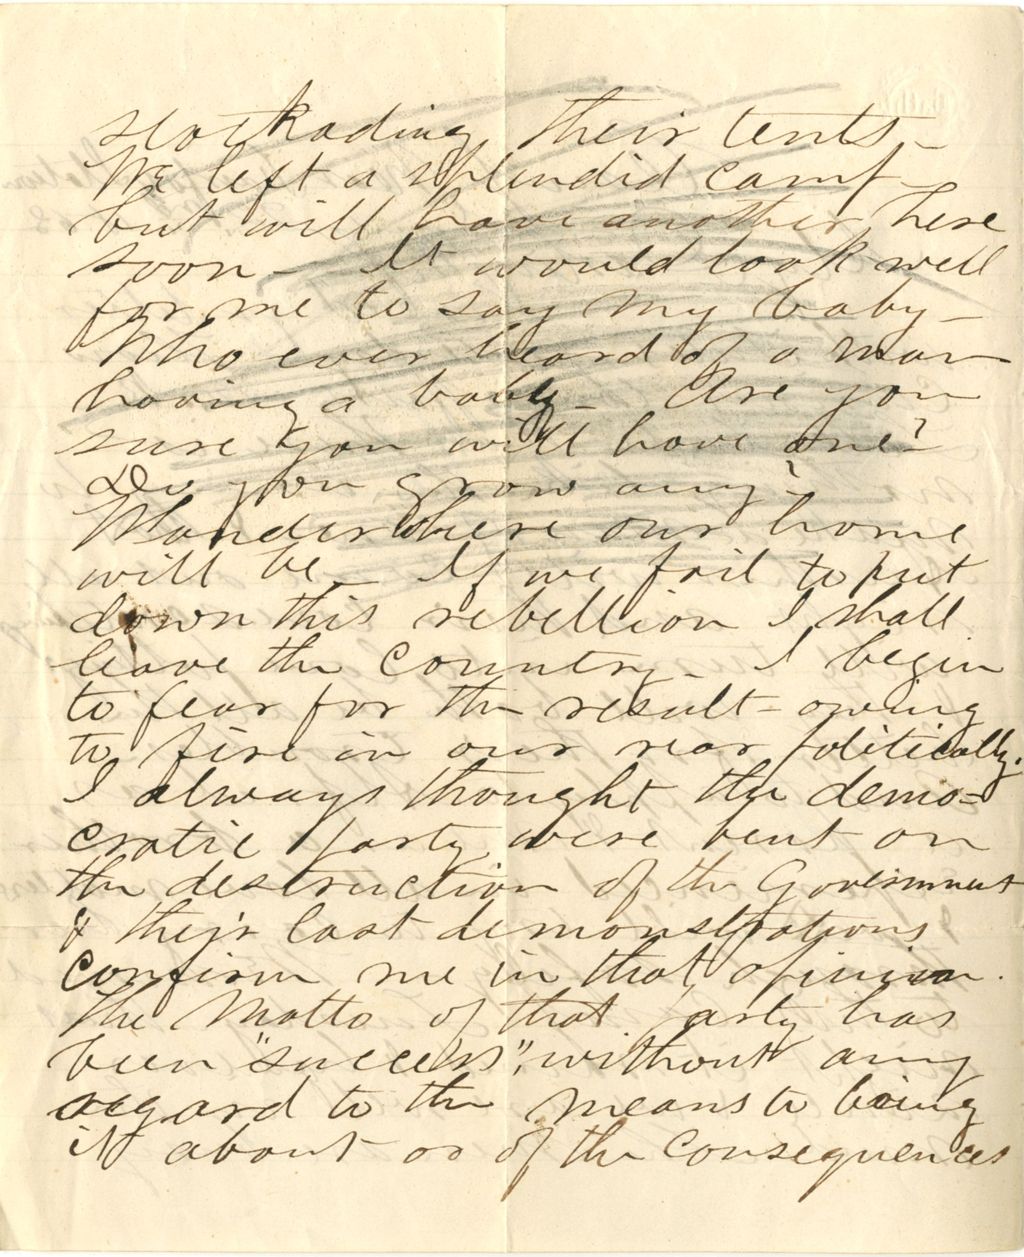 stockading their tents –
We left a splendid camp
but will have another here
soon – It would look well
for me to say my baby –
Who ever heard of a man
having a baby – Are you
sure you will have one?
Do you grow any?
Wonder where our home
will be – If we fail to put
down this rebellion I shall
leave the Country I begin
to fear for the result – owing
to fire in our rear politically.
I always thought the demo=
cratic party were bent on
the destruction of the Government
& their last demonstrations
confirm me in that opinion.
The Motto of that party has
been "success", without any
regard to the means to bring
it about or of the consequences